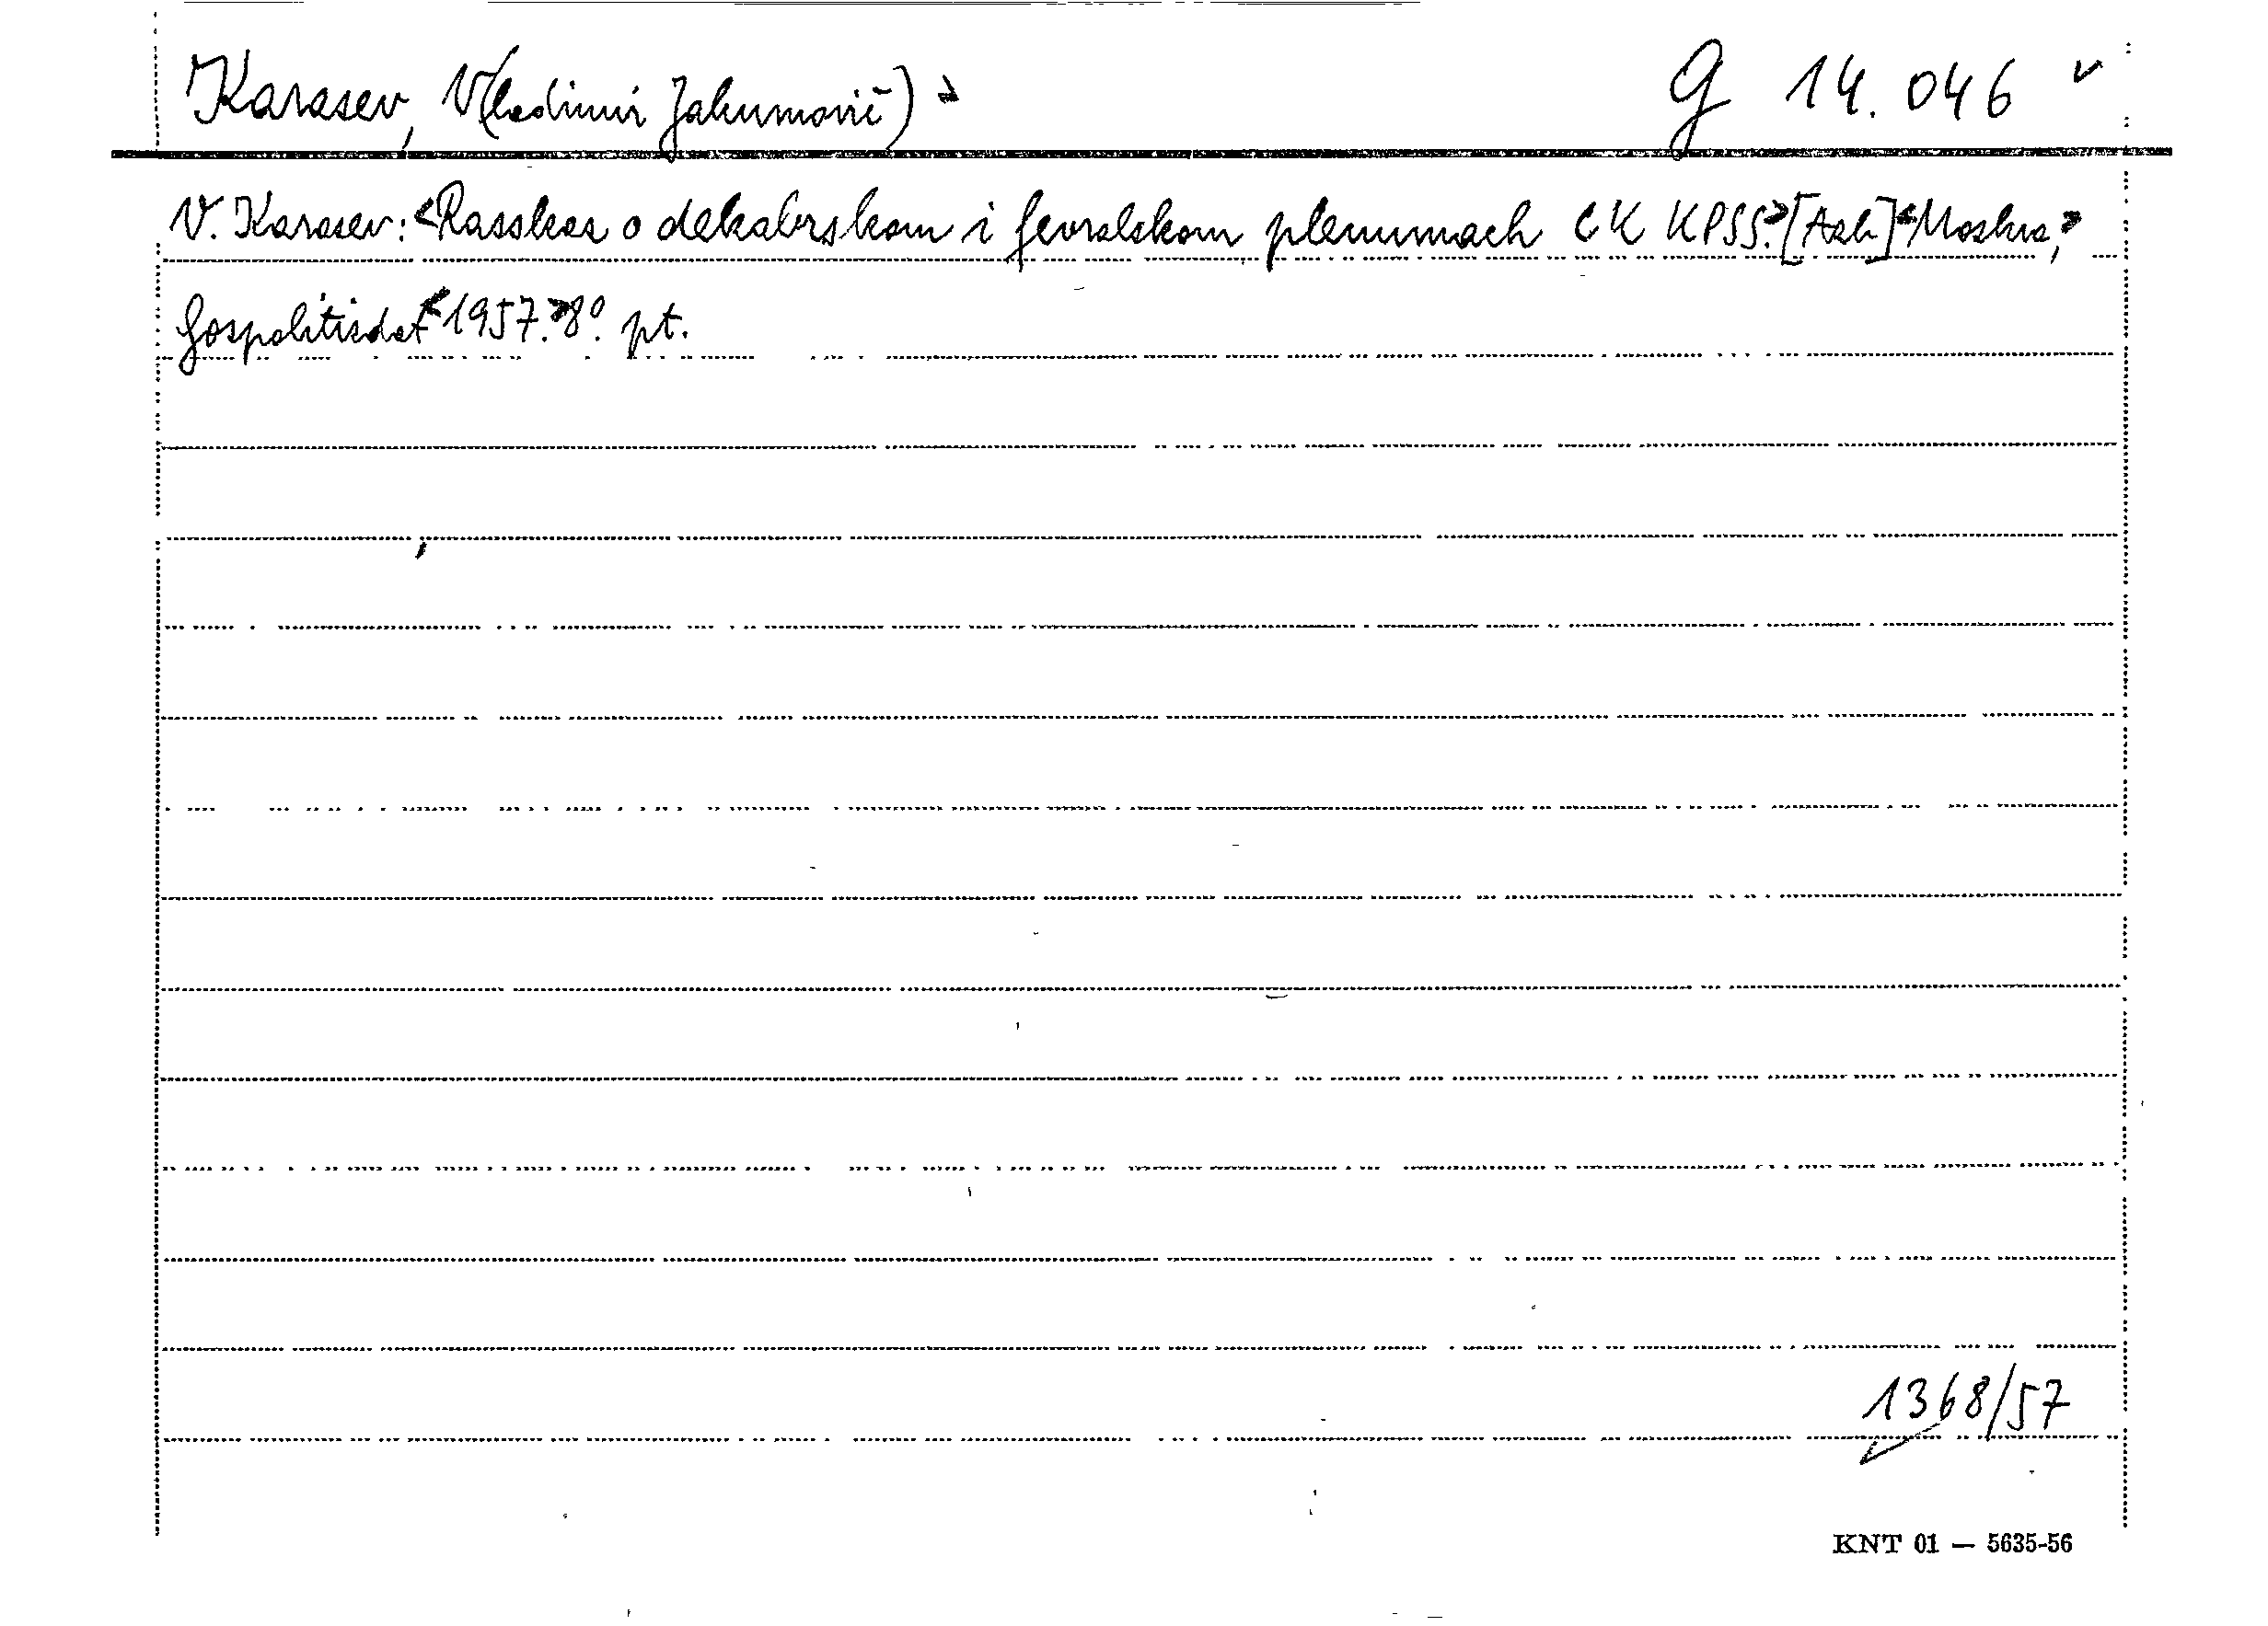 Karasev, V(ladimir Jakumovič) > G 14.046 v
V. Karasev: <Rasskaz o dekabrskom i fevralskom plenumach CK KPSS.> [Azb] <Moskva,>
Gospolitizdat <1957.> 8°. pt.
1368/57
KNT 01 — 5635-56